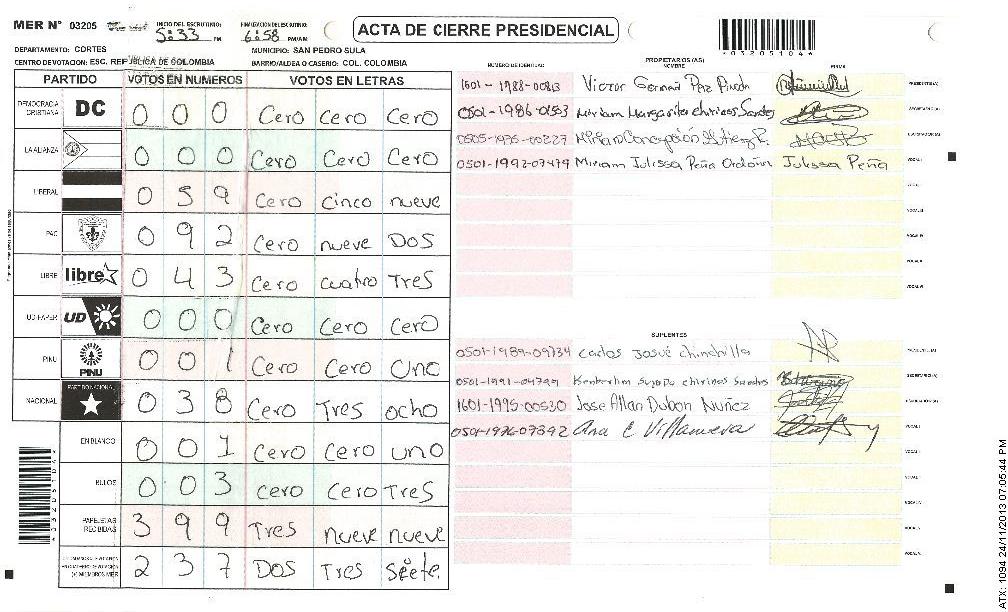 MER Nº 03205
INICIO DEL ESCRUTINIO: 5:33 PM
FINALIZACION DEL ESCRUTINIO: 6:58 PM/AM
ACTA DE CIERRE PRESIDENCIAL
03205104
DEPARTAMENTO: CORTES
MUNICIPIO: SAN PEDRO SULA
CENTRO DE VOTACION: ESC. REPUBLICA DE COLOMBIA
BARRIO/ALDEA O CASERIO: COL. COLOMBIA
PARTIDO VOTOS EN NUMEROS VOTOS EN LETRAS
DEMOCRACIA CRISTIANA DC 0 0 0 Cero Cero Cero
LA ALIANZA 0 0 0 Cero Cero Cero
LIBERAL 0 59 Cero cinco nueve
PAC 0 9 2 Cero nueve DOS
LIBRE libre 0 4 3 Cero cuatro Tres
UD-FAPER UD 0 0 0 Cero Cero Cero
PINU PINU 0 0 1 Cero Cero Uno
NACIONAL PARTIDO NACIONAL 0 3 8 Cero Tres ocho
EN BLANCO 0 0 1 Cero Cero uno
NULOS 0 0 3 Cero Cero Tres
PAPELETAS RECIBIDAS 3 9 9 Tres nueve nueve
2 3 7 DOS Tres Siete
NUMERO DE IDENTIDAD PROPIETARIOS (AS) NOMBRE FIRMA
1601-1988-00813 Victor German Paz PRESIDENTE(A)
0501-1986-01503 Miriam Margarita chirinos Santos SECRETARIO(A)
0505-1975-00227
0501-1992-07479 Miriam Julissa Peña Julissa Peña VOCAL I
VOCAL II
VOCAL III
VOCAL IV
VOCAL V
VOCAL VI
SUPLENTES
0501-1989-09734 Carlos Josué chinchilla
0501-1991-04799 chirinos Santos SECRETARIO(A)
1601-1995-00530 Jose Allan Dubon Nuñez
0501-1976-07392 Ana C Villanueva VOCAL I
ATX: 1094 24/11/2013 07:05:44 PM